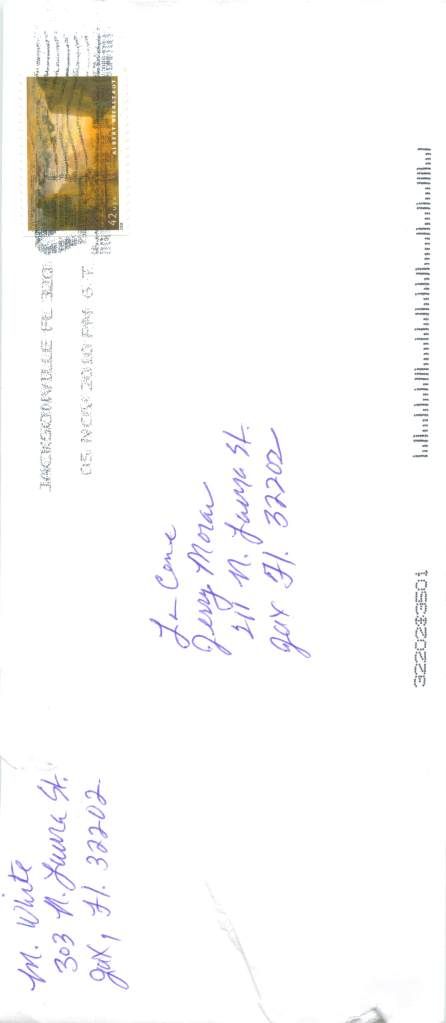 M. White
303 N. Laura St.
Jax, Fl. 32202
JACKSONVILLE FL 320
05 NOV 2010 PM 6 T
ALBERT BIERSTADT
42 USA
La Cena
Jerry Moran
211 N. Laura St.
Jax Fl. 32202
32202&3501